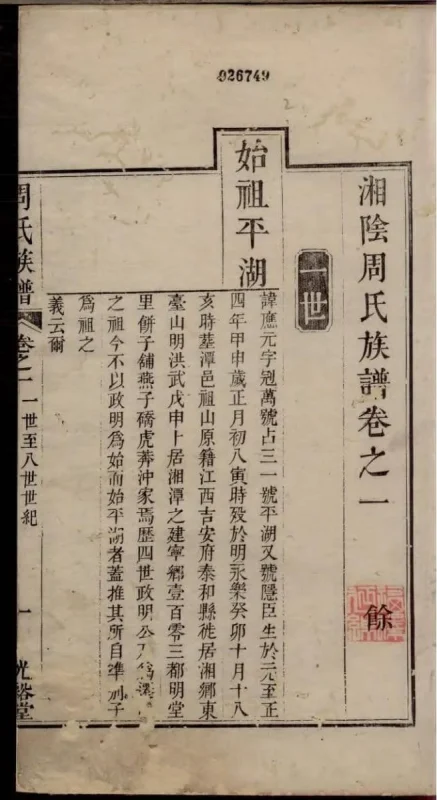 026749
湘陰周氏族譜卷之一
餘
一世
始祖平湖
諱應元字冠萬號占三一號平湖又號隱臣生於元至正
四年甲申歲正月初八寅時歿於明永樂癸卯十月十八
亥時墓潭邑祖山原籍江西吉安府泰和縣徙居湘鄉東
臺山明洪武戊申卜居湘潭之建寧鄉壹百零三都明堂
里餅子舖燕子磡虎莽沖家焉歷四世政明公
之祖今不以政明為始而始平湖者蓋推其所自準別子
為祖之
義云爾
周氏族譜
卷之一
一世至八世世紀
一
光裕堂